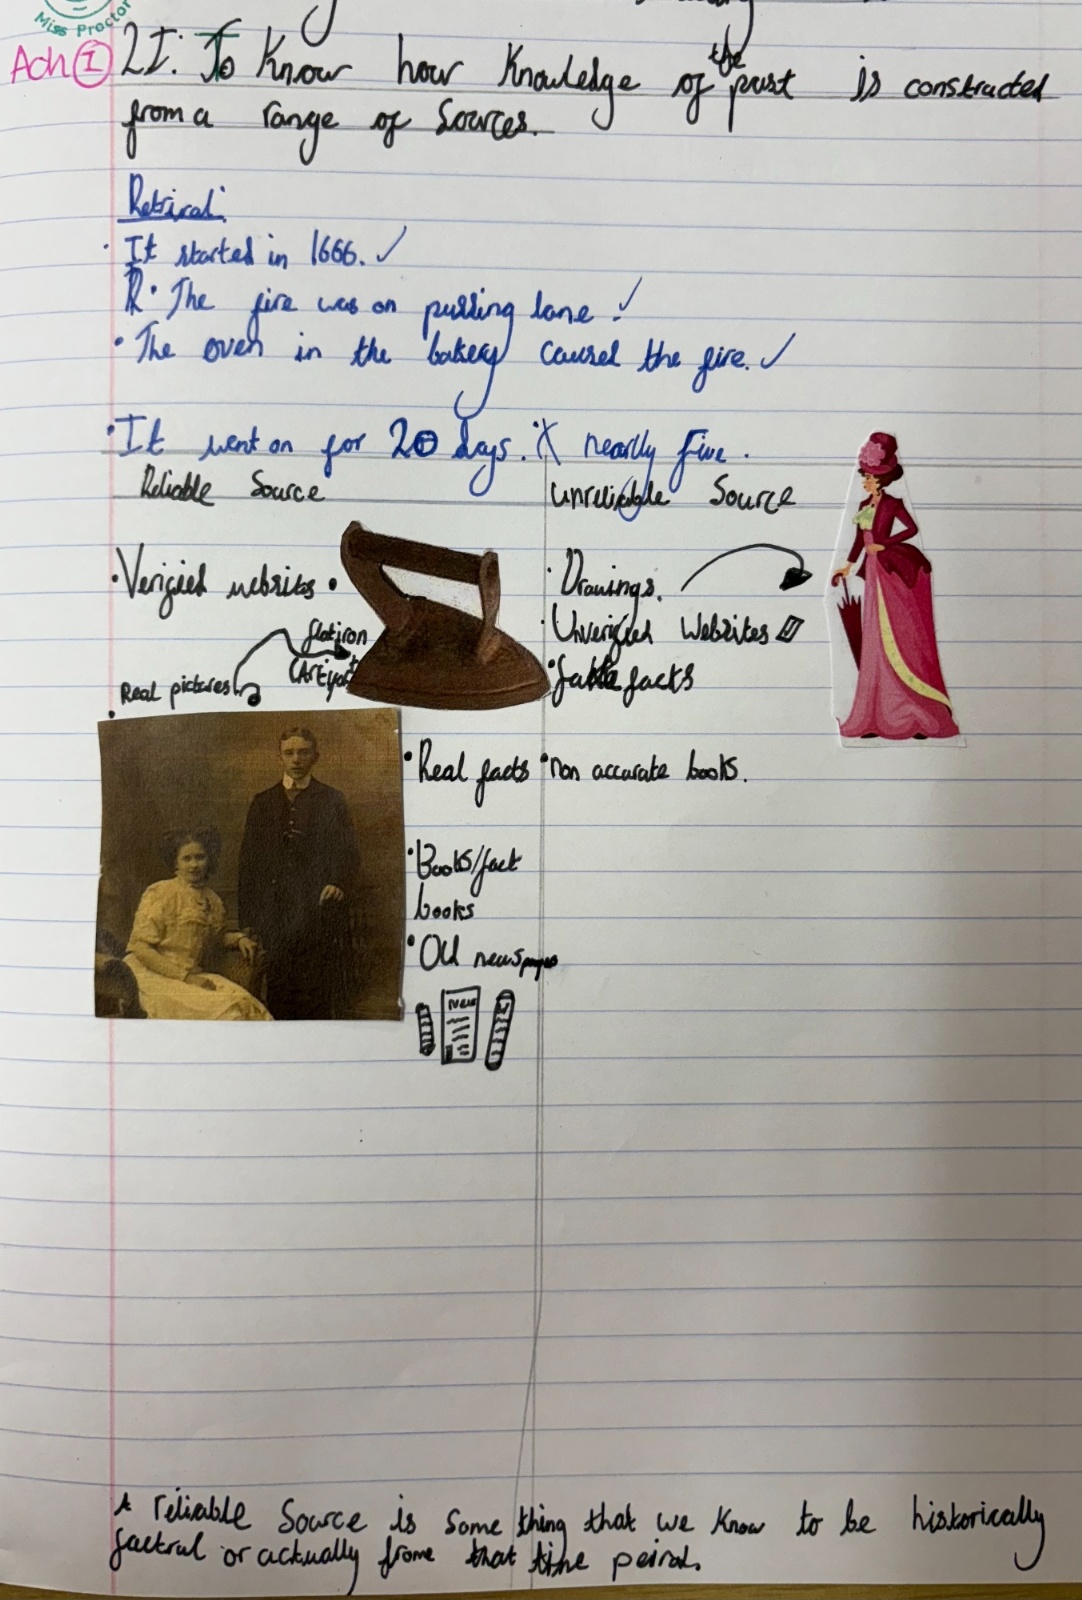 Miss Proctor
Ach I LI: To Know how Knowledge of the past is constracted
from a range of Sources.
Retrival:
· It started in 1666. ✓
R · The fire was on pudding lane. ✓
· The oven in the bakery caused the fire. ✓
· It went on for 20 days. X nearlly five.
Reliable Source
unreliable Source
· Verified websites ·
· Drawings.
· Unverified Websites
flatiron
(Artifact
· fake facts
Real pictures
· Real facts
· non accurate books.
· Books/fact
books
· Old newspapes
NEWS
A reliable Source is some thing that we know to be historically
factral or actually frome that time peirod.